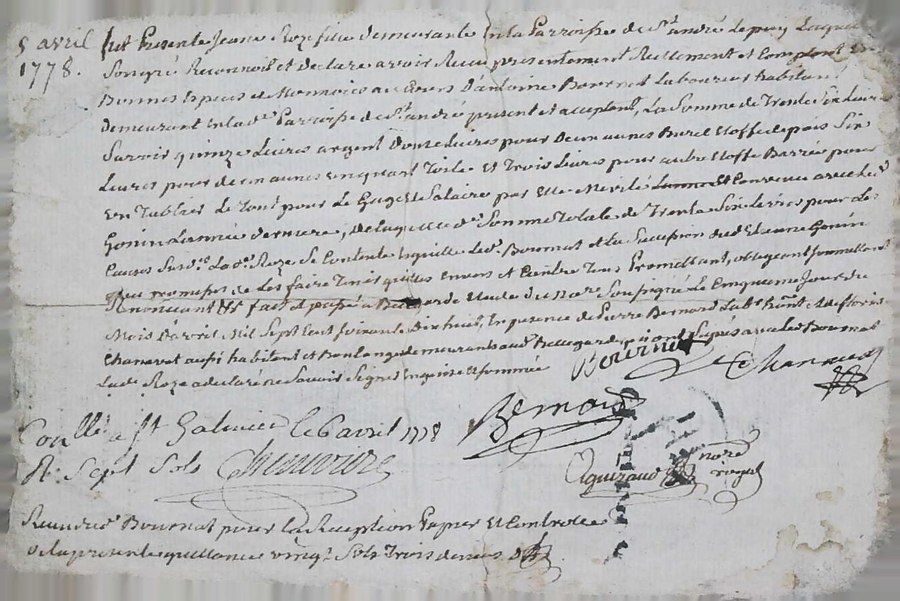 5 avril
1778.
fut Presente Jeane Roze fille demeurante En la Parroisse de St andré le puy Laquelle
de Son gré Reconnoit et declare avoir Receu presentement Reellement et Comptant En
Bonnes Espèces et Monnoies au Cours D'antoine Bournat Laboureur habitant
demeurant En lade Parroisse de St andré present et aceptant, La Somme de Trente Six Livres
Savoir quinze Livres argent Douze Livres pour Deux aunes Burel Etoffe de païs Six
Livres pour deux aunes En quart Toile Et Trois Livres pour autre Etoffe Barrée pour
En Tablier Le Tout pour Le Gage Et Salaire par Elle Merité Convenu avec led
Gonin L'année derniere, de laquelle de Somme Totale de Trente Six Livres pour Les
Causes Susd. La de Roze Se Contente En quitte led. Bournat et La Succession dud Etienne Gonin
promesse de Les faire Tenir quittes Envers et Contre Tous Promettant, obligeant Soumettant
Renonceant &c fait et passé a Etude du Nore Soussigné Le Cinquieme Jour du
Mois D'avril Mil Sept Cent Soixante Dix huit, En presence de Pierre Bernard Labr habt et de floris
Chanavat aussi habitant et Boulanger demeurants aud Bellegard qui ont Signés avec led Bournat
Lade Roze a declaré ne Savoir Signer Enquise et sommée
Bournat
Chanavat
Bernard
Conllé a St Galmier le 6 avril 1778
R. Sept Sols
nore
royal
Receu dud Bournat pour la Reception Papier Et Controlle
de la presente quittance vingt Sols Trois deniers